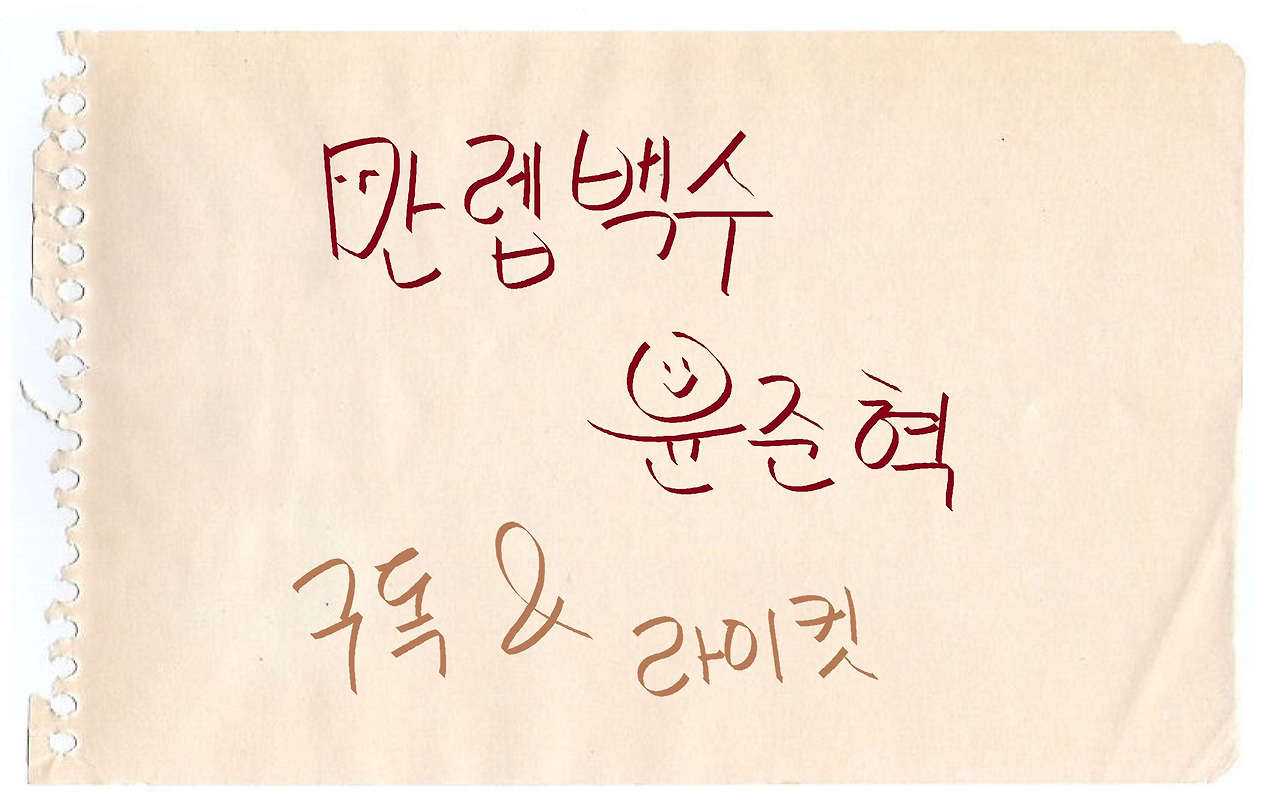 만렙백수
윤준혁
구독 & 라이킷